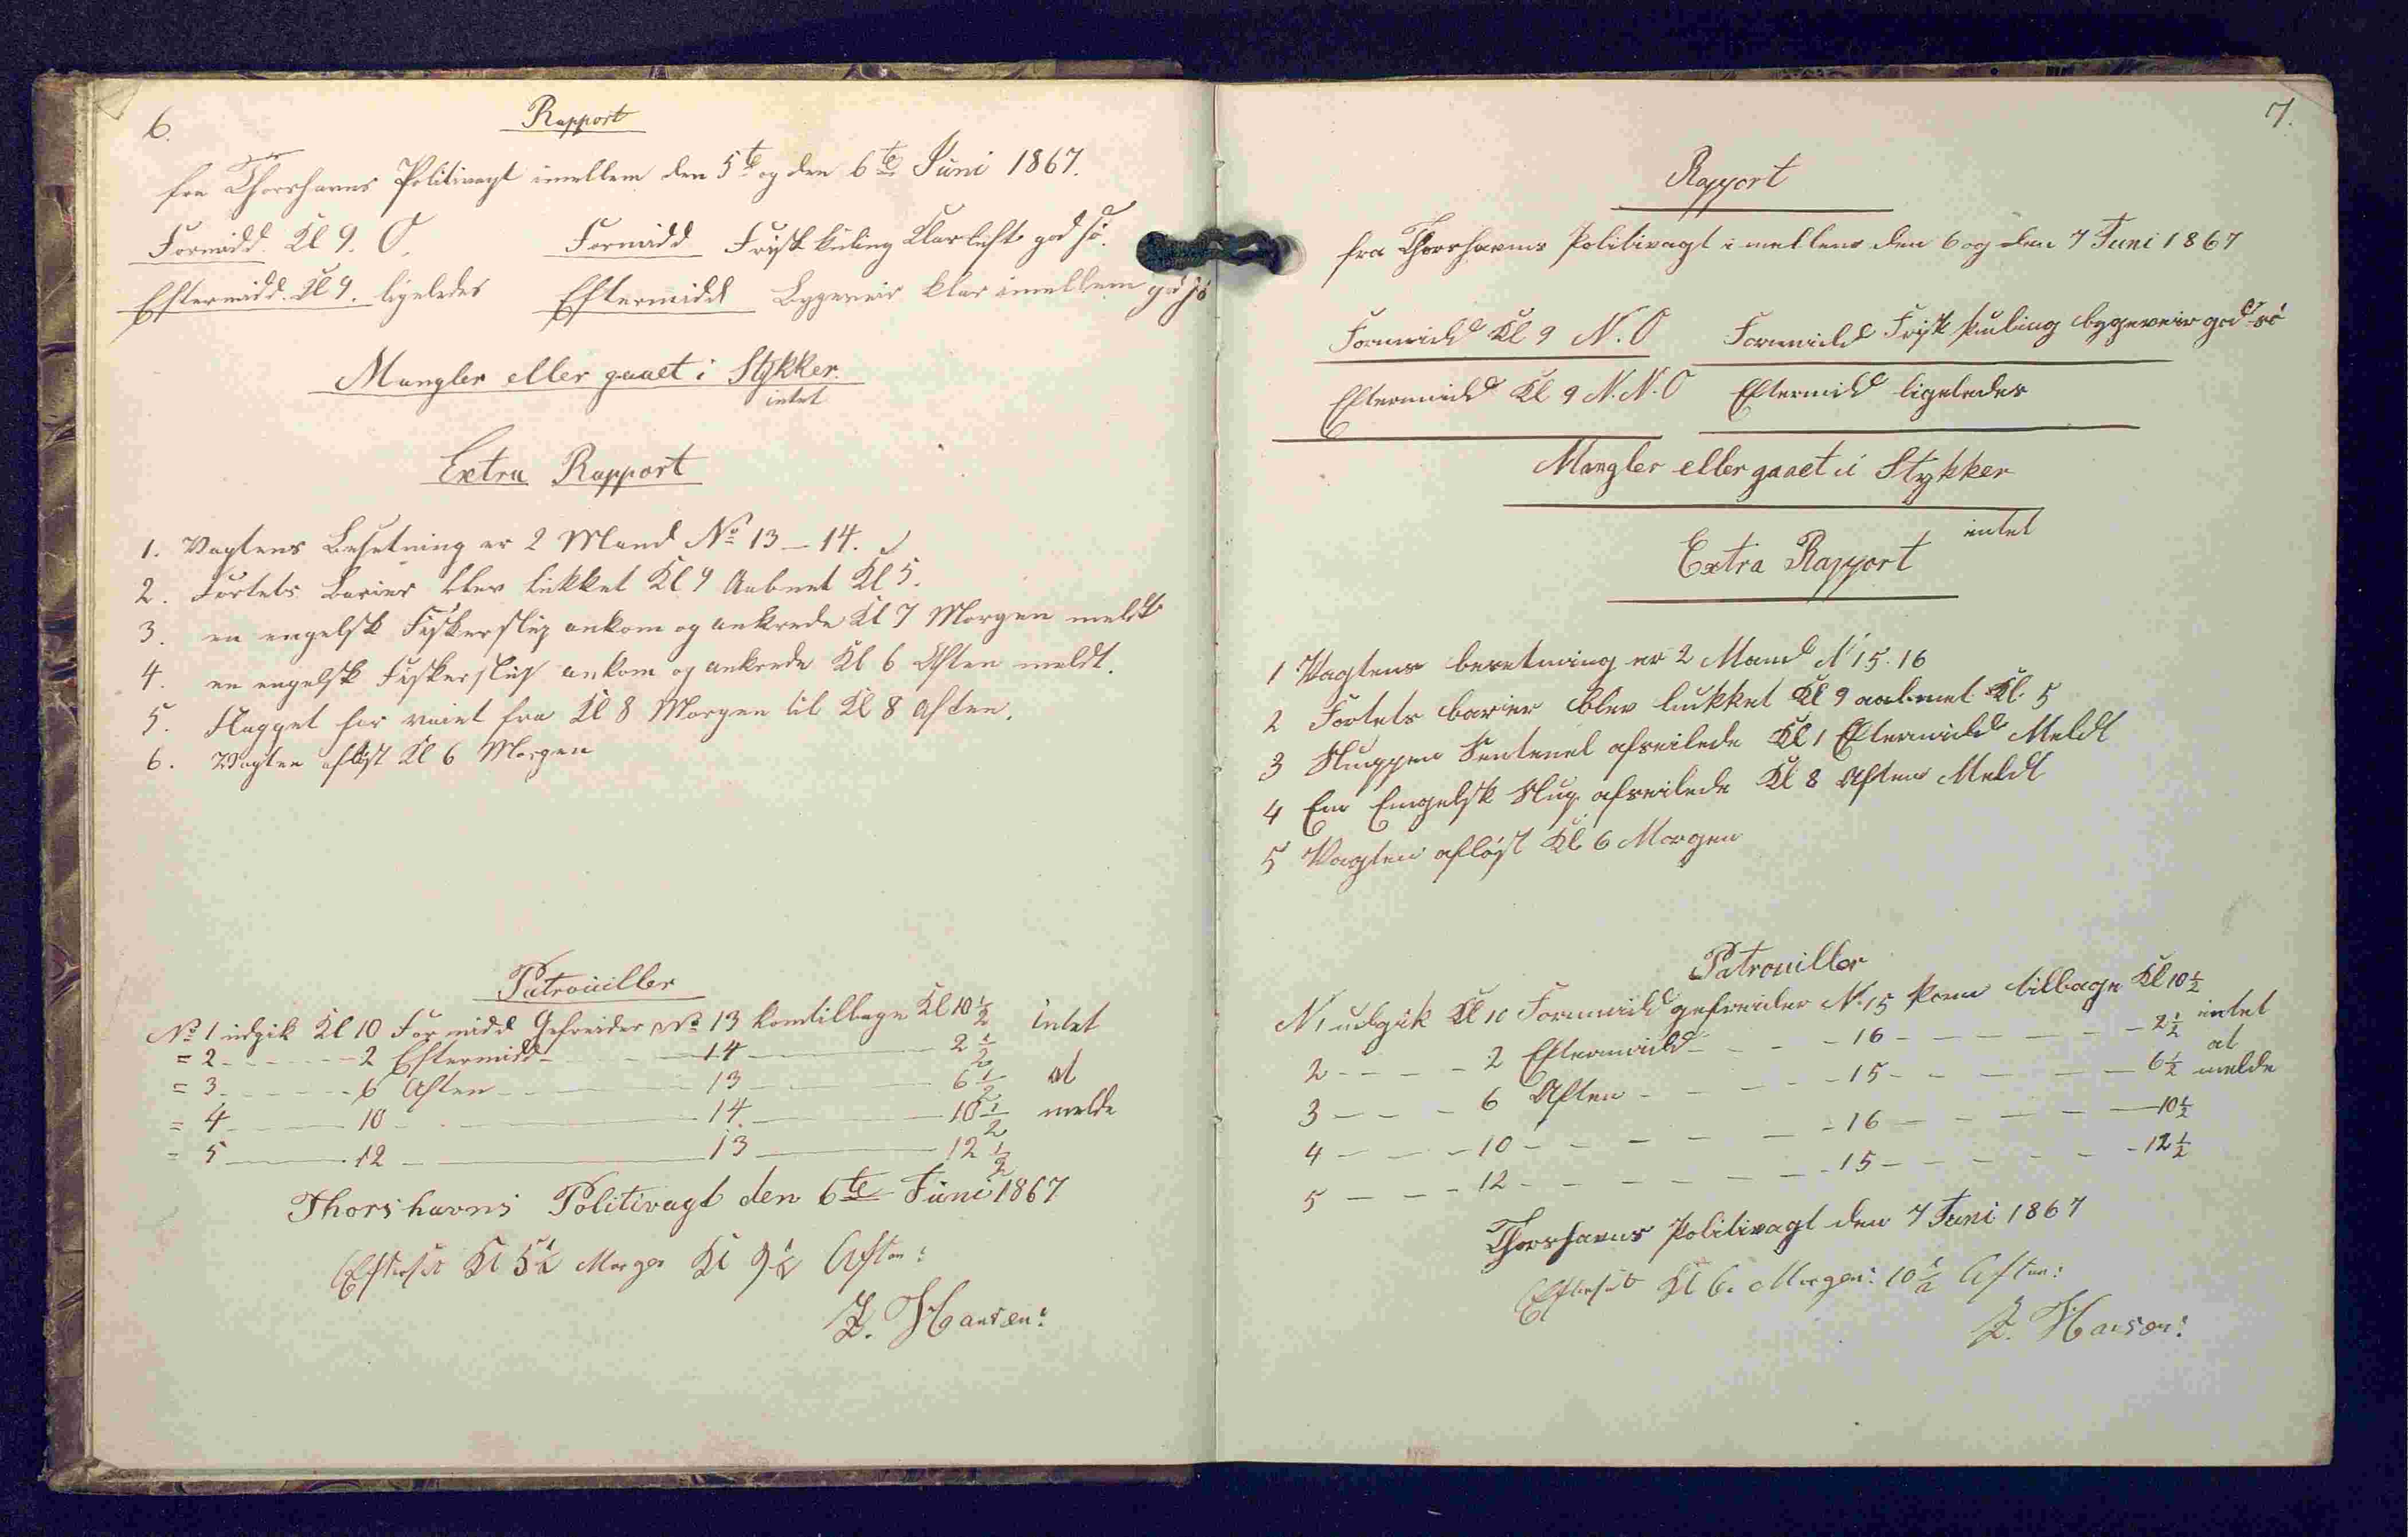 6.
Rapport
fra Thorshavns Politivagt imellem den 5te og den 6te Juni 1867.
Formidd. Kl 9. O. Formidd Frisk kuling Klar luft god sö.
Eftermidd. Kl 9. ligeledes Eftermidd Bygeveir klar imellem god sö
Mangler eller gaaet i Stykker.
intet
Extra Rapport
1. Vagtens Besetning er 2 Mand No 13 - 14.
2. Fortets Barier blev lukket Kl 9 Aabnet Kl 5.
3. en engelsk Fiskerslup ankom og ankrede Kl 7 Morgen meldt
4. en engelsk Fiskerslup ankom og ankrede Kl 6 Aften meldt.
5. Flagget har vaiet fra Kl 8 Morgen til Kl 8 Aften.
6. Vagten aflöst Kl 6 Morgen
Patrouiller
No 1 udgik Kl 10 Formidd Gefreider No 13 kom tilbage Kl 10 1/2 intet
= 2 - - - 2 Eftermidd - - 14 - 2 1/2
= 3 - - - 6 Aften - - 13 - 6 1/2 at
= 4 - - - 10 - - 14. - 10 1/2 melde
= 5 - - - 12 - - 13 - 12 1/2
Thorshavns Politivagt den 6te Juni 1867
Efterset Kl 5 1/2 Morgen Kl 9 1/2 Aften:
Z. Hansen:
7.
Rapport
fra Thorshavns Politivagt i mellem den 6 og den 7 Juni 1867
Formidd Kl 9 N. O Formidd Frisk kuling bygeveir god sö
Eftermidd Kl 9 N. N. O Eftermidd ligeledes
Mangler eller gaaet i Stykker
intet
Extra Rapport
1 Vagtens besetning er 2 Mand N 15. 16
2 Fortets barier blev lukket Kl 9 aabnet Kl. 5
3 Sluppen Sentenel afseilede Kl 1 Eftermidd Meldt
4 En Engelsk Slup afseilede Kl 8 Aften Meldt
5 Vagten aflöst Kl. 6 Morgen
Patrouiller
N 1 udgik Kl 10 Formidd gefreider N. 15 kom tilbage Kl 10 1/2
2 - - - - 2 Eftermidd - - - - 16 - - - - 2 1/2 intet
3 - - - 6 Aften - - - - 15 - - - - 6 1/2 at
4 - - - 10 - - - - 16 - - - - 10 1/2 melde
5 - - - 12 - - - - 15 - - - - 12 1/2
Thorshavns Politivagt den 7 Juni 1867
Efterset Kl 6. Morgen: 10 1/2 Aften:
Z. Hansen: